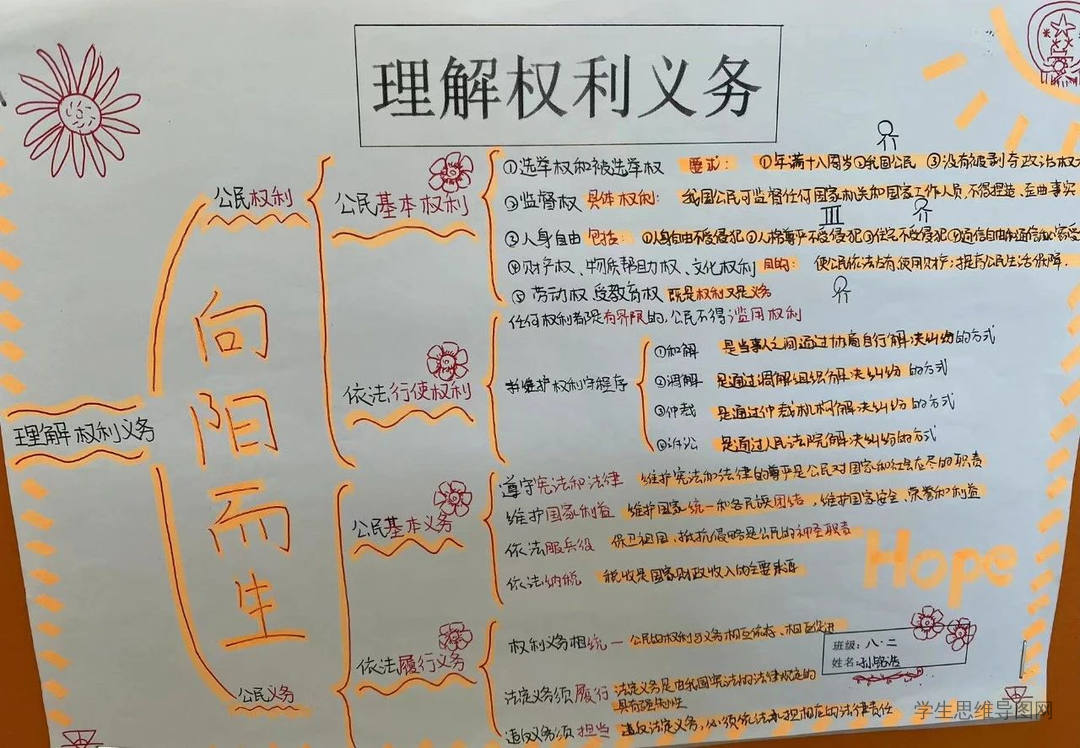 理解权利义务
理解权利义务
向阳而生
公民权利
公民基本权利
①选举权和被选举权 要求：①年满十八周岁②我国公民 ③没有被剥夺政治权
②监督权 具体权利：我国公民可监督任何国家机关和国家工作人员,不得捏造、歪曲事实
③人身自由 包括：①人身自由不受侵犯②人格尊严不受侵犯③住宅不受侵犯④通信自由和通信秘密受
④财产权、物质帮助权、文化权利 目的：使公民依法占有、使用财产;提高公民生活保障.
⑤劳动权 受教育权 既是权利又是义务
依法行使权利
任何权利都是有界限的,公民不得滥用权利
维护权利守程序
①和解 是当事人之间通过协商自行解决纠纷的方式
②调解 是通过调解组织解决纠纷的方式
③仲裁 是通过仲裁机构解决纠纷的方式
④诉讼 是通过人民法院解决纠纷的方式
公民义务
公民基本义务
遵守宪法和法律 维护宪法和法律的尊严是公民对国家和社会应尽的职责
维护国家利益 维护国家统一和各民族团结，维护国家安全、荣誉和利益
依法服兵役 保卫祖国、抵抗侵略是公民的神圣职责
依法纳税 税收是国家财政收入的主要来源
Hope
依法履行义务
权利义务相统一 公民的权利与义务相互依存、相互促进
法定义务须履行 法定义务是由我国宪法和法律规定的
具有强制性
违反义务须担当 违反法定义务,必须依法承担相应的法律责任
班级：八·二
姓名：
学生思维导图网